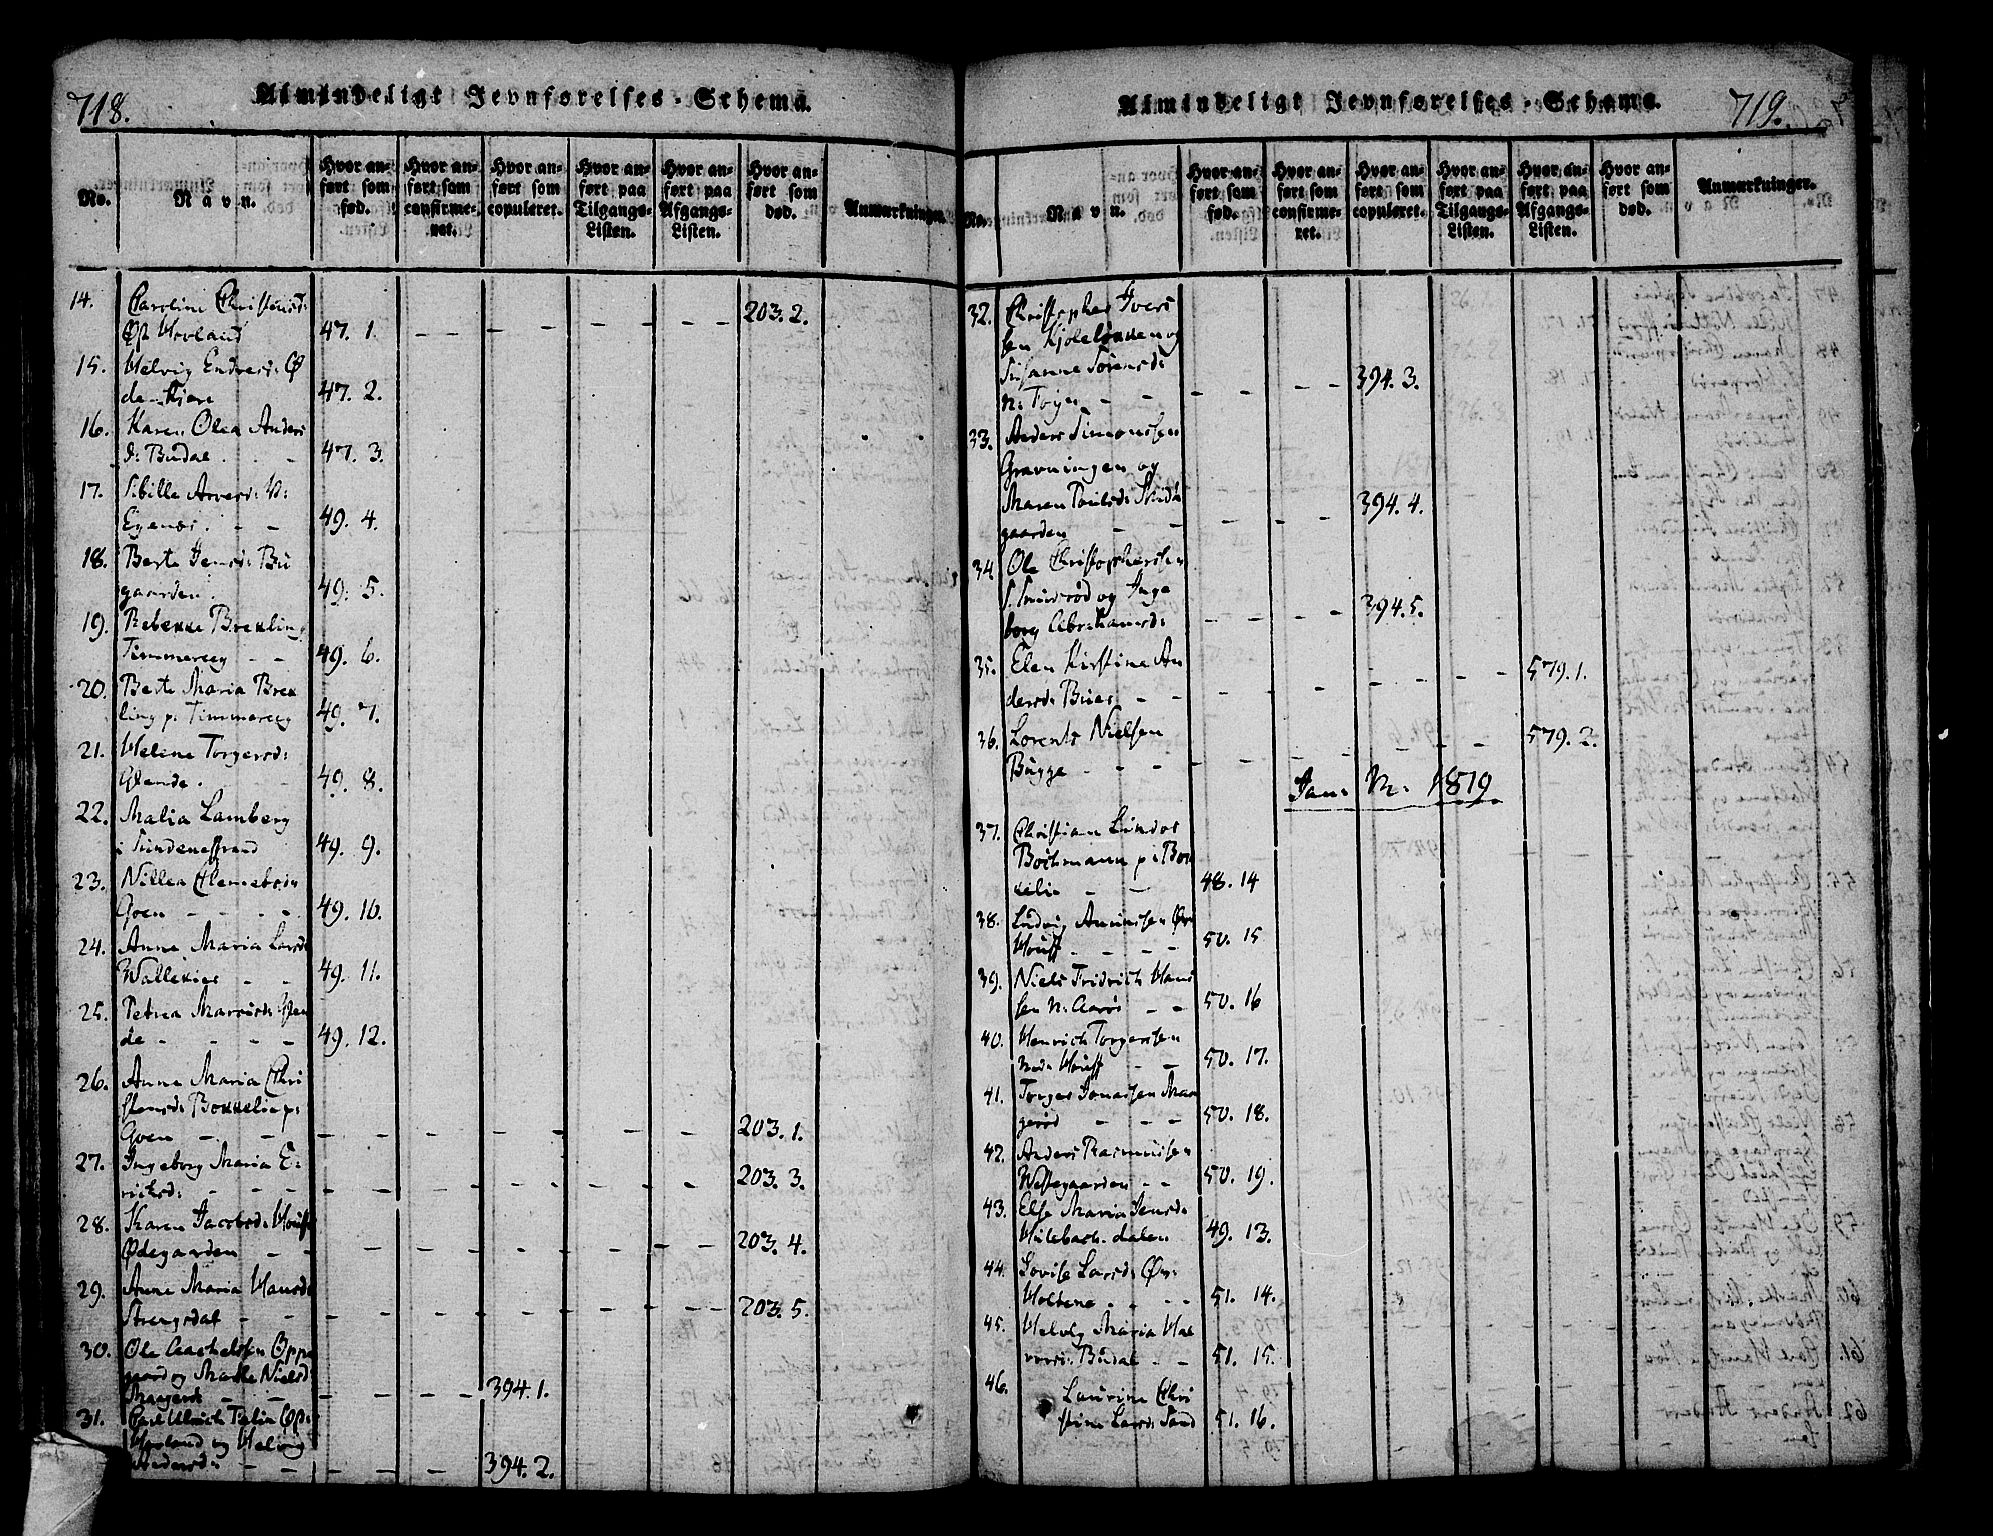 718.
Almindeligt Jevnførelses-Schema.
No.
Navn.
Hvor anført som fød.
Hvor anført som confirmeret.
Hvor anført som copuleret.
Hvor anført paa Tilgangs-Listen.
Hvor anført paa Afgangs-Listen.
Hvor anført som død.
Anmærkninger.
14. Caroline Christensd:
Øst Hovland 47. 1. - - - - 203. 2.
15. Helvig Endresd: Ø
de Kjære 47. 2.
16. Karen Olea Anders
d: Budal 47. 3.
17. Sibille Arvesd: N:
Egenæs. 49. 4.
18. Berte Jensd: Bu
gaarden. 49. 5.
19. Rebekke Brekling
Timmeraeg 49. 6.
20. Berte Maria Brek
ling p. Timmeraeg 49. 7.
21. Helene Torgersd:
Glende. 49. 8.
22. Malia Lamberg
i Sundene strand 49. 9.
23. Nillea Clemetsd:
Goen 49. 10.
24. Anne Maria Larsd:
Wallekier 49. 11.
25. Petrea Mariusd:
de 49. 12.
26. Anne Maria Chri
stensd: Bokkelie p:
Goen - - - - - 203. 1.
27. Ingeborg Maria E:
riksd: - - - - - 203. 3.
28. Karen Jacobsd:
Ødegaarden - - - - - 203. 4.
29. Anne Maria Hansd:
Strengsdal - - - - - 203. 5.
30. Ole Opp
gaard og Marthe Nielsd:
- - - 394. 1.
31. Carl Ulrich Øst:
Hovland og Helvig
Andersd: - - - 394. 2.
Almindeligt Jevnførelses-Schema.
719.
No.
Navn.
Hvor anført som fød.
Hvor anført som confirmeret.
Hvor anført som copuleret.
Hvor anført paa Tilgangs-Listen.
Hvor anført paa Afgangs-Listen.
Hvor anført som død.
Anmærkninger.
32. Christopher Iver
sen og
Susanne Sørensd:
N: - - - - 394. 3.
33. Anders Simonssen
Gravningen og
Maren Poulsd:
gaarden - - - - 394. 4.
34. Ole Christophersen
og Inge
borg Abrahamsd: - - - 394. 5.
35. Elen Kirstine An
dersd: - - - - - 579. 1.
36. Lorents Nielsen
Bugge - - - - - 579. 2.
Jan: M: 1819
37. Christian
p: Bok
kelie - - 48. 14
38. Ludvig Amunssen Øvr
- - - 50. 15
39. Niels Fridrich Hans
sen N: Aarøe - - 50. 16
40. Henrich Torgerssen
Ned: - - 50. 17.
41. Torger Jonassen Mar
gerød - - - 50. 18.
42. Anders Rasmussen
Westgaarden - - 50. 19.
43. Else Maria Jensd:
dalen 49. 13.
44. Lovise Larsd: Øvr:
Holtene. - - 51. 14.
45. Helvig Maria Hal
vorsd: Budal - - 51. 15.
46. Laurine Chri
stine Larsd: Sand 51. 16.